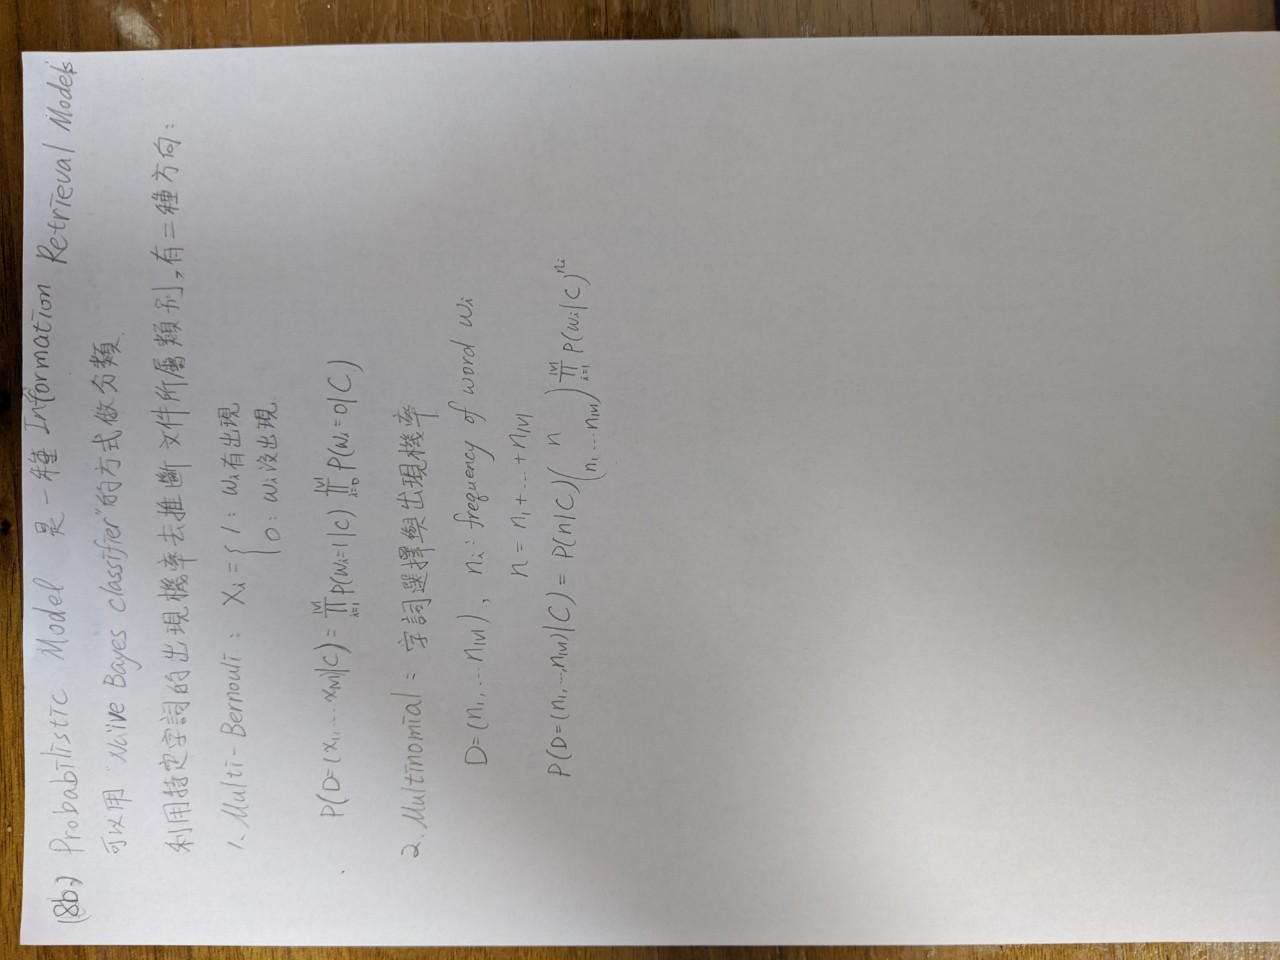 (8b.) Probabilistic Model 是一種 Information Retrieval Models
可以用 "Naïve Bayes classifier" 的方式做分類.
利用特定字詞的出現機率去推斷文件所屬類別,有二種方向:
1. Multi-Bernouli : Xi = { 1 : wi 有出現
0 : wi 沒出現
P(D=(x1, ... x|V||C) = ∏_{i=1}^{|V|} P(wi=1|C) ∏_{i=0}^{|V|} P(wi=0|C)
2. Multinomial : 字詞選擇與出現機率
D=(n1, ... n|V|), ni : frequency of word wi
n = n1 + ... + n|V|
P(D=(n1, ..., n|V|)|C) = P(n|C) (n / n1 ... n|V|) ∏_{i=1}^{|V|} P(wi|C)^{ni}